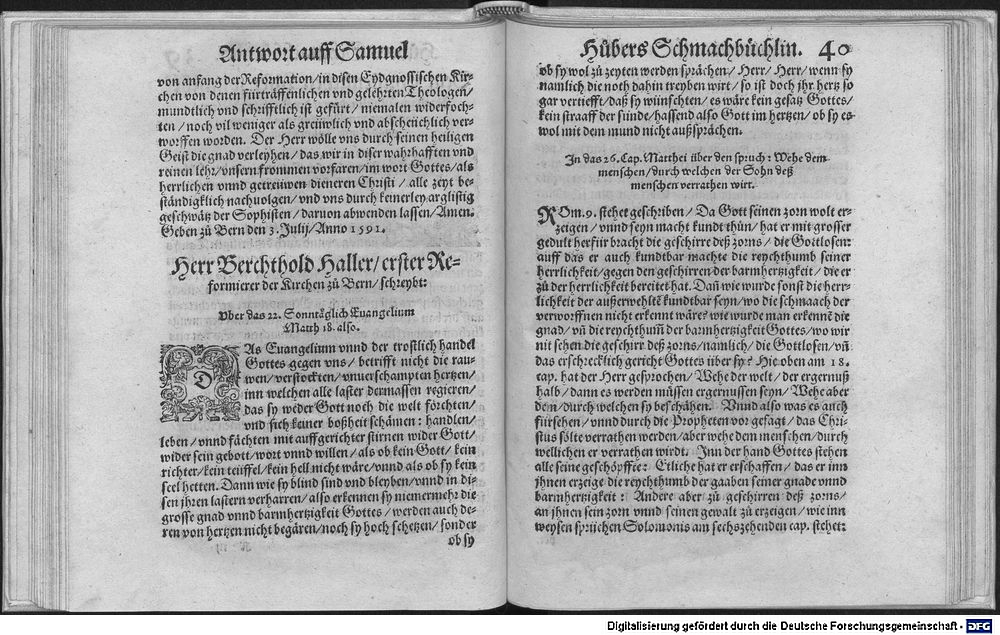 Antwort auff Samuel
von anfang der Reformation/ in disen Eydgnossischen Kir-
chen von denen fürträffenlichen vnd gelehrten Theologen/
mundtlich vnd schrifftlich ist gefürt/ niemalen widerfoch-
ten/ noch vil weniger als greüwlich vnd abscheichlich ver-
worffen worden. Der Herr wölle vns durch seinen heiligen
Geist die gnad verleyhen/ das wir in diser wahrhafften vnd
reinen lehr/ vnsern frommen vorfaren/ im wort Gottes/ als
herrlichen vnnd getreüwen dieneren Christi/ alle zeyt be-
ständigklich nachuolgen/ vnd vns durch keinerley arglistig
geschwätz der Sophisten/ daruon abwenden lassen/ Amen.
Geben zů Bern den 3. Julij/ Anno 1591.
Herr Berchthold Haller/ erster Re-
formierer der Kirchen zů Bern/ schreybt:
Vber das 22. Sonntäglich Euangelium
Matth 18. also.
DAs Euangelium vnnd der trostlich handel
Gottes gegen vns/ betrifft nicht die rau-
wen/ verstockten/ vnuerschampten hertzen/
inn welchen alle laster dermassen regieren/
das sy weder Gott noch die welt förchten/
vnd sich keiner boßheit schämen: handlen/
leben/ vnnd fächten mit auffgerichter stirnen wider Gott/
wider sein gebott/ wort vnnd willen/ als ob kein Gott/ kein
richter/ kein teüffel/ kein hell nicht wäre/ vnnd als ob sy kein
seel hetten. Dann wie sy blind sind vnd bleyben/ vnnd in di-
sen jhren lastern verharren/ also erkennen sy niemermehr die
grosse gnad vnnd barmhertzigkeit Gottes/ werden auch de-
ren von hertzen nicht begären/ noch sy hoch schetzen/ sonder
ob sy
Hůbers Schmachbüchlin. 40
ob sy wol zů zeyten werden sprächen/ Herr/ Herr/ wenn sy
namlich die noch dahin treyben wirt/ so ist doch jhr hertz so
gar vertiefft/ daß sy wünschten/ es wäre kein gesatz Gottes/
kein straaff der sünde/ hassend also Gott im hertzen/ ob sy es
wol mit dem mund nicht außsprächen.
In das 26. Cap. Matthei über den spruch: Wehe dem
menschen/ durch welchen der Sohn deß
menschen verrathen wirt.
ROm. 9. stehet geschriben/ Da Gott seinen zorn wolt er-
zeigen/ vnnd seyn macht kundt thůn/ hat er mit grosser
gedult herfür bracht die geschirre deß zorns/ die Gottlosen:
auff das er auch kundtbar machte die reychthumb seiner
herrlichkeit/ gegen den geschirren der barmhertzigkeit/ die er
zů der herrlichkeit bereitet hat. Dañ wie wurde sonst die herr-
lichkeit der außerwehltē kundtbar seyn/ wo die schmaach der
verworffnen nicht erkennt wäre? wie wurde man erkennē die
gnad/ vñ die reychthum̃ der barmhertzigkeit Gottes/ wo wir
nit schen die geschirr deß zorns/ namlich/ die Gottlosen/ vñ
das erschrecklich gericht Gottes über sy? Hie oben am 18.
cap. hat der Herr gesprochen/ Wehe der welt/ der ergernuß
halb/ dann es werden müssen ergernussen seyn/ Wehe aber
dem/ durch welchen sy beschähen. Vnnd also was es auch
fürsehen/ vnnd durch die Propheten vor gesagt/ das Chri-
stus sölte verrathen werden/ aber wehe dem menschen/ durch
wellichen er verrathen wirdt. Inn der hand Gottes stehen
alle seine geschöpffte: Etliche hat er erschaffen/ das er inn
jhnen erzeige die reychthumb der gaaben seiner gnade vnnd
barmhertzigkeit: Andere aber zů geschirren deß zorns/
an jhnen sein zorn vnnd seinen gewalt zů erzeigen/ wie inn
weysen sprüchen Solomonis am sechszehenden cap. stehet:
Digitalisierung gefördert durch die Deutsche Forschungsgemeinschaft - DFG